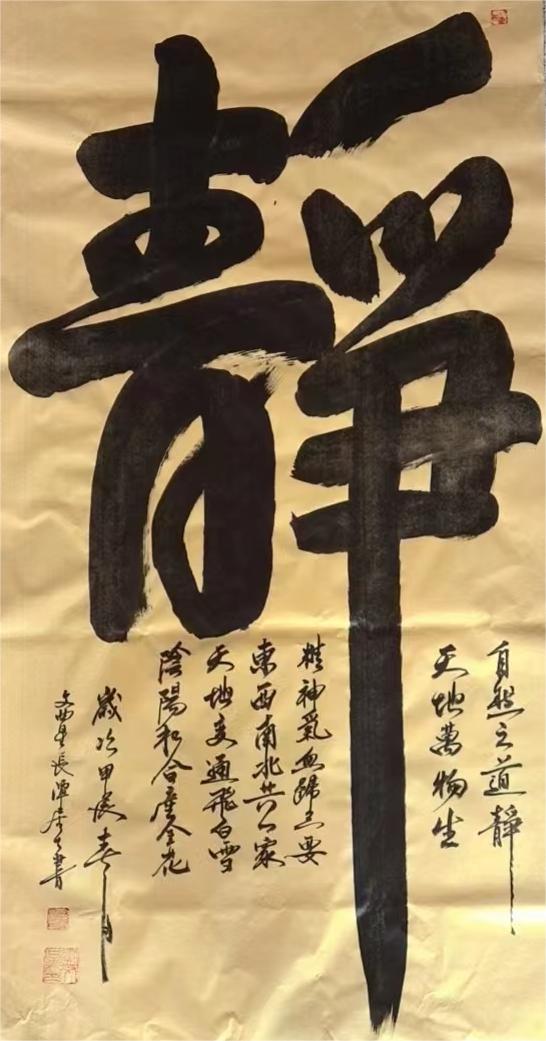 靜
自然之道靜
天地萬物生
精神氣血歸三要
東西南北共一家
天地交通飛白雪
陰陽和合產金花
歲次甲辰春月
長潭
書